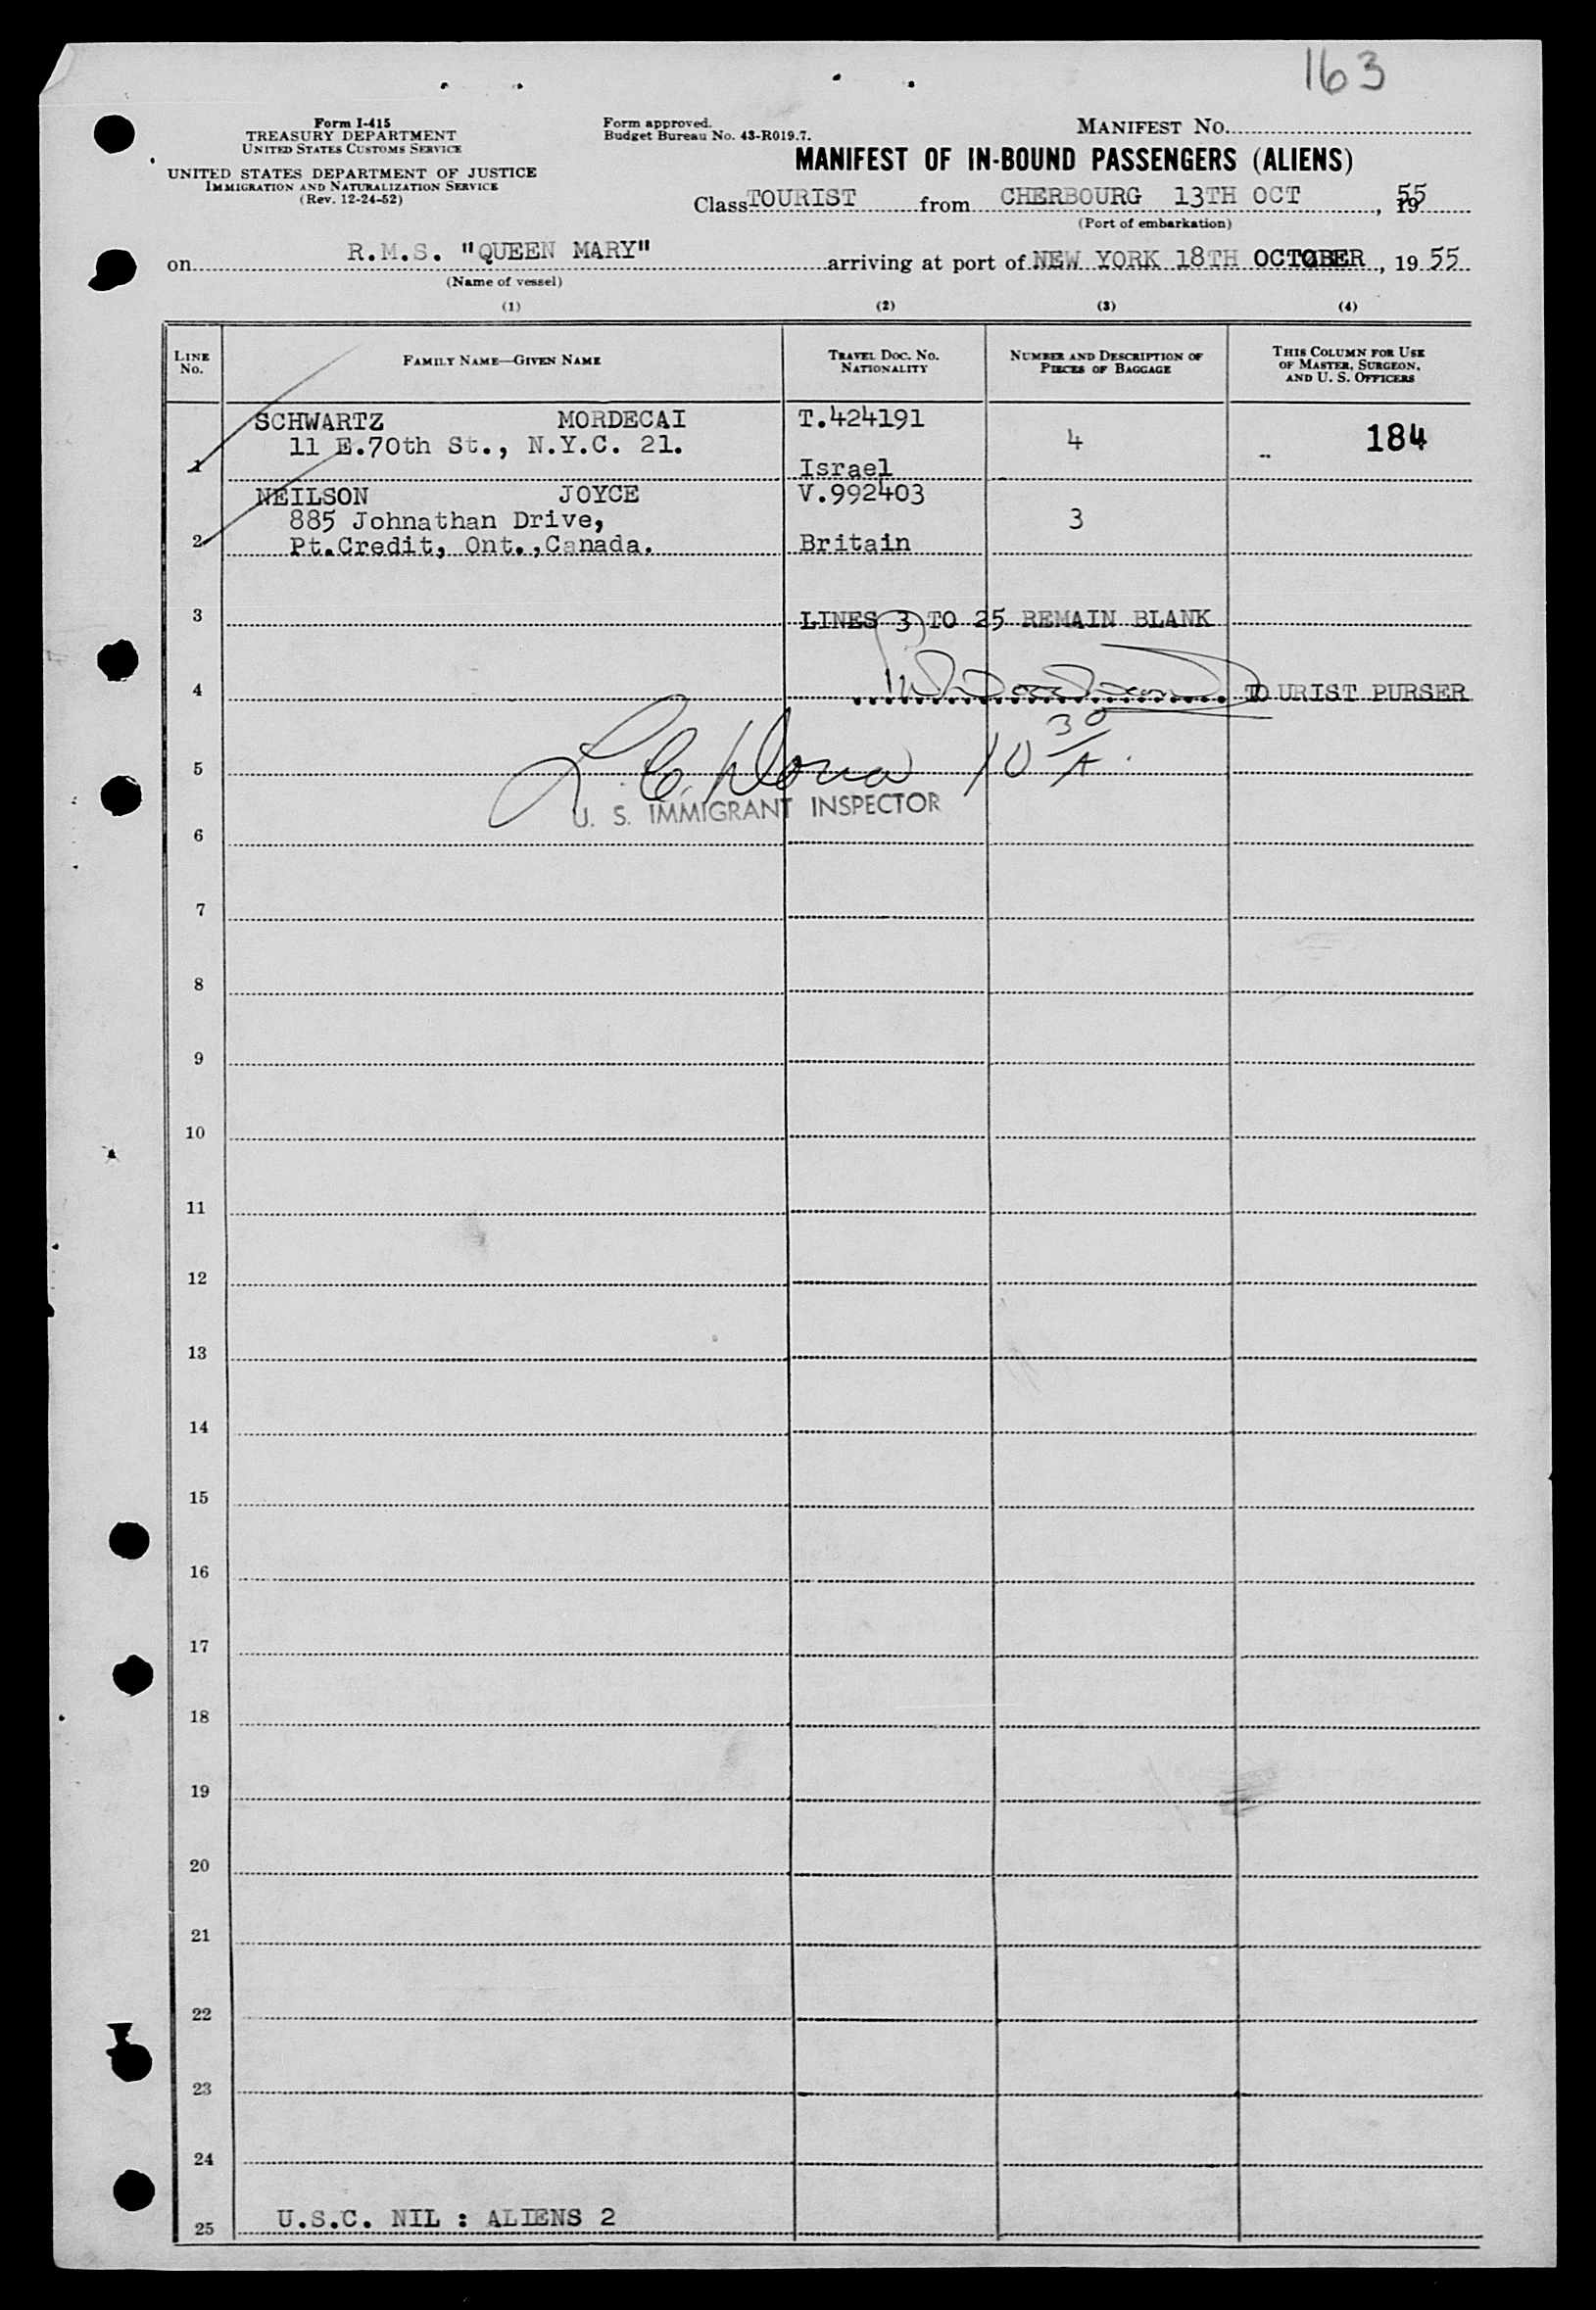 163
Form I-415
TREASURY DEPARTMENT
UNITED STATES CUSTOMS SERVICE
UNITED STATES DEPARTMENT OF JUSTICE
IMMIGRATION AND NATURALIZATION SERVICE
(Rev. 12-24-52)
Form approved.
Budget Bureau No. 43-R019.7.
MANIFEST NO.
MANIFEST OF IN-BOUND PASSENGERS (ALIENS)
Class TOURIST from CHERBOURG 13TH OCT, 1955
(Port of embarkation)
on R.M.S. "QUEEN MARY" arriving at port of NEW YORK 18TH OCTOBER, 19 55
(Name of vessel)
(1) (2) (3) (4)
LINE NO.
FAMILY NAME—GIVEN NAME
TRAVEL DOC. NO. NATIONALITY
NUMBER AND DESCRIPTION OF PIECES OF BAGGAGE
THIS COLUMN FOR USE OF MASTER, SURGEON, AND U. S. OFFICERS
SCHWARTZ MORDECAI T.424191
11 E.70th St., N.Y.C. 21. 4 184
1 Israel
NEILSON JOYCE V.992403
885 Johnathan Drive, 3
2 Pt.Credit, Ont.,Canada. Britain
3 LINES 3 TO 25 REMAIN BLANK
4 TOURIST PURSER
5 10 30/A.
U. S. IMMIGRANT INSPECTOR
6
7
8
9
10
11
12
13
14
15
16
17
18
19
20
21
22
23
24
25 U.S.C. NIL : ALIENS 2